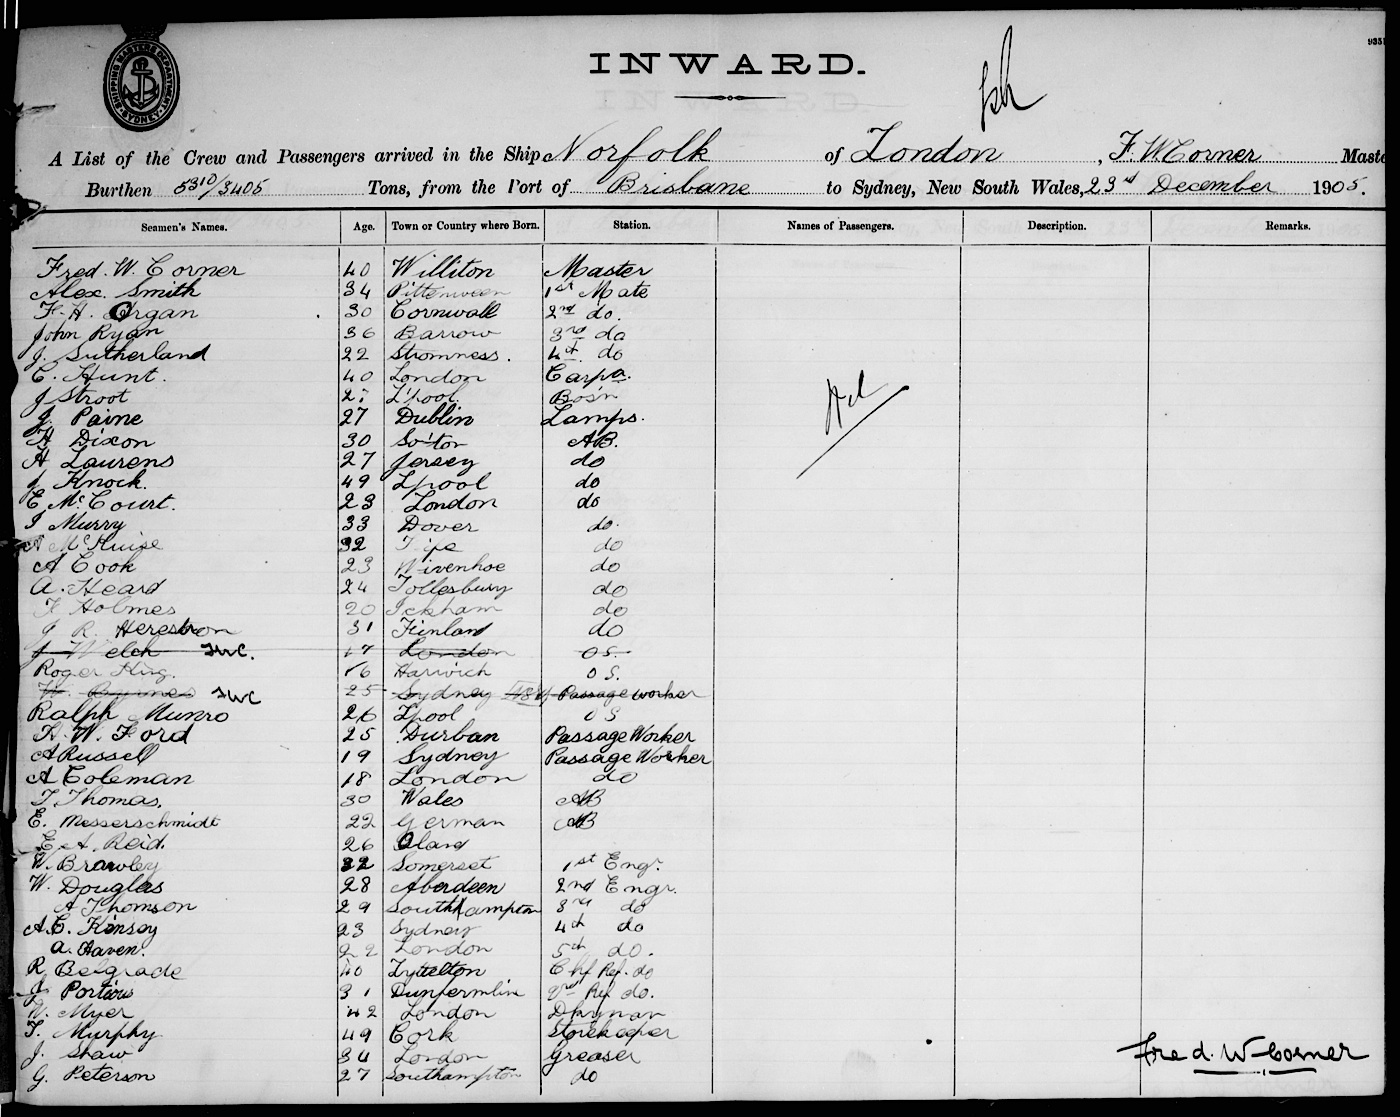 SHIPPING MASTERS DEPARTMENT SYDNEY
INWARD.
A List of the Crew and Passengers arrived in the Ship Norfolk of London , F. W. Corner Maste
Burthen 5310/3405 Tons, from the Port of Brisbane to Sydney, New South Wales, 23rd December 1905.
Seamen's Names. Age. Town or Country where Born. Station. Names of Passengers. Description. Remarks.
Fred. W. Corner 40 Williton Master
Alex. Smith 34 Pittenween 1st Mate
F. H. Organ 30 Cornwall 2nd do.
John Ryan 36 Barrow 3rd do
J. Sutherland 22 Stromness. 4th do
C. Hunt. 40 London Carpr.
J Stroot L'pool. Bos'n
J. Paine 27 Dublin Lamps.
H Dixon 30 So'ton AB.
H Laurens 27 Jersey do
J Knock. 49 Lpool do
E McCourt. 23 London do
J Murry 33 Dover do.
32 do
A Cook 23 Wivenhoe do
A. Heard 24 Tollesbury do
F Holmes 20 Ickham do
J R. Hergstrom 31 Finland do
J Welch FWC. 17 London O S.
Roger King. 16 Harwich O S.
W. Byrnes FWC 25 Sydney Passage worker
Ralph Munro 26 Lpool O S
H. W. Ford 25 Durban Passage Worker
A Russell 19 Sydney Passage Worker
A Coleman 18 London do
T. Thomas. 30 Wales AB
E. Messerschmidt 22 German AB
E. A. Reid. 26 Oland
W. Brawley 32 Somerset 1st Engr.
W. Douglas 28 Aberdeen 2nd Engr.
A Thomson 29 Southampton 3rd do
A. C. Kinsey 23 Sydney 4th do
A. Haven. 22 London 5th do.
R. Belgrade 40 Lyttelton Chf Ref. do
J Portious 31 Dunfermlin 2nd Ref do.
W. Myer 42 London Dkyman
T. Murphy 49 Cork Storekeeper
J. Shaw 34 London Greaser
G. Peterson 27 Southampton do
Fred. W Corner